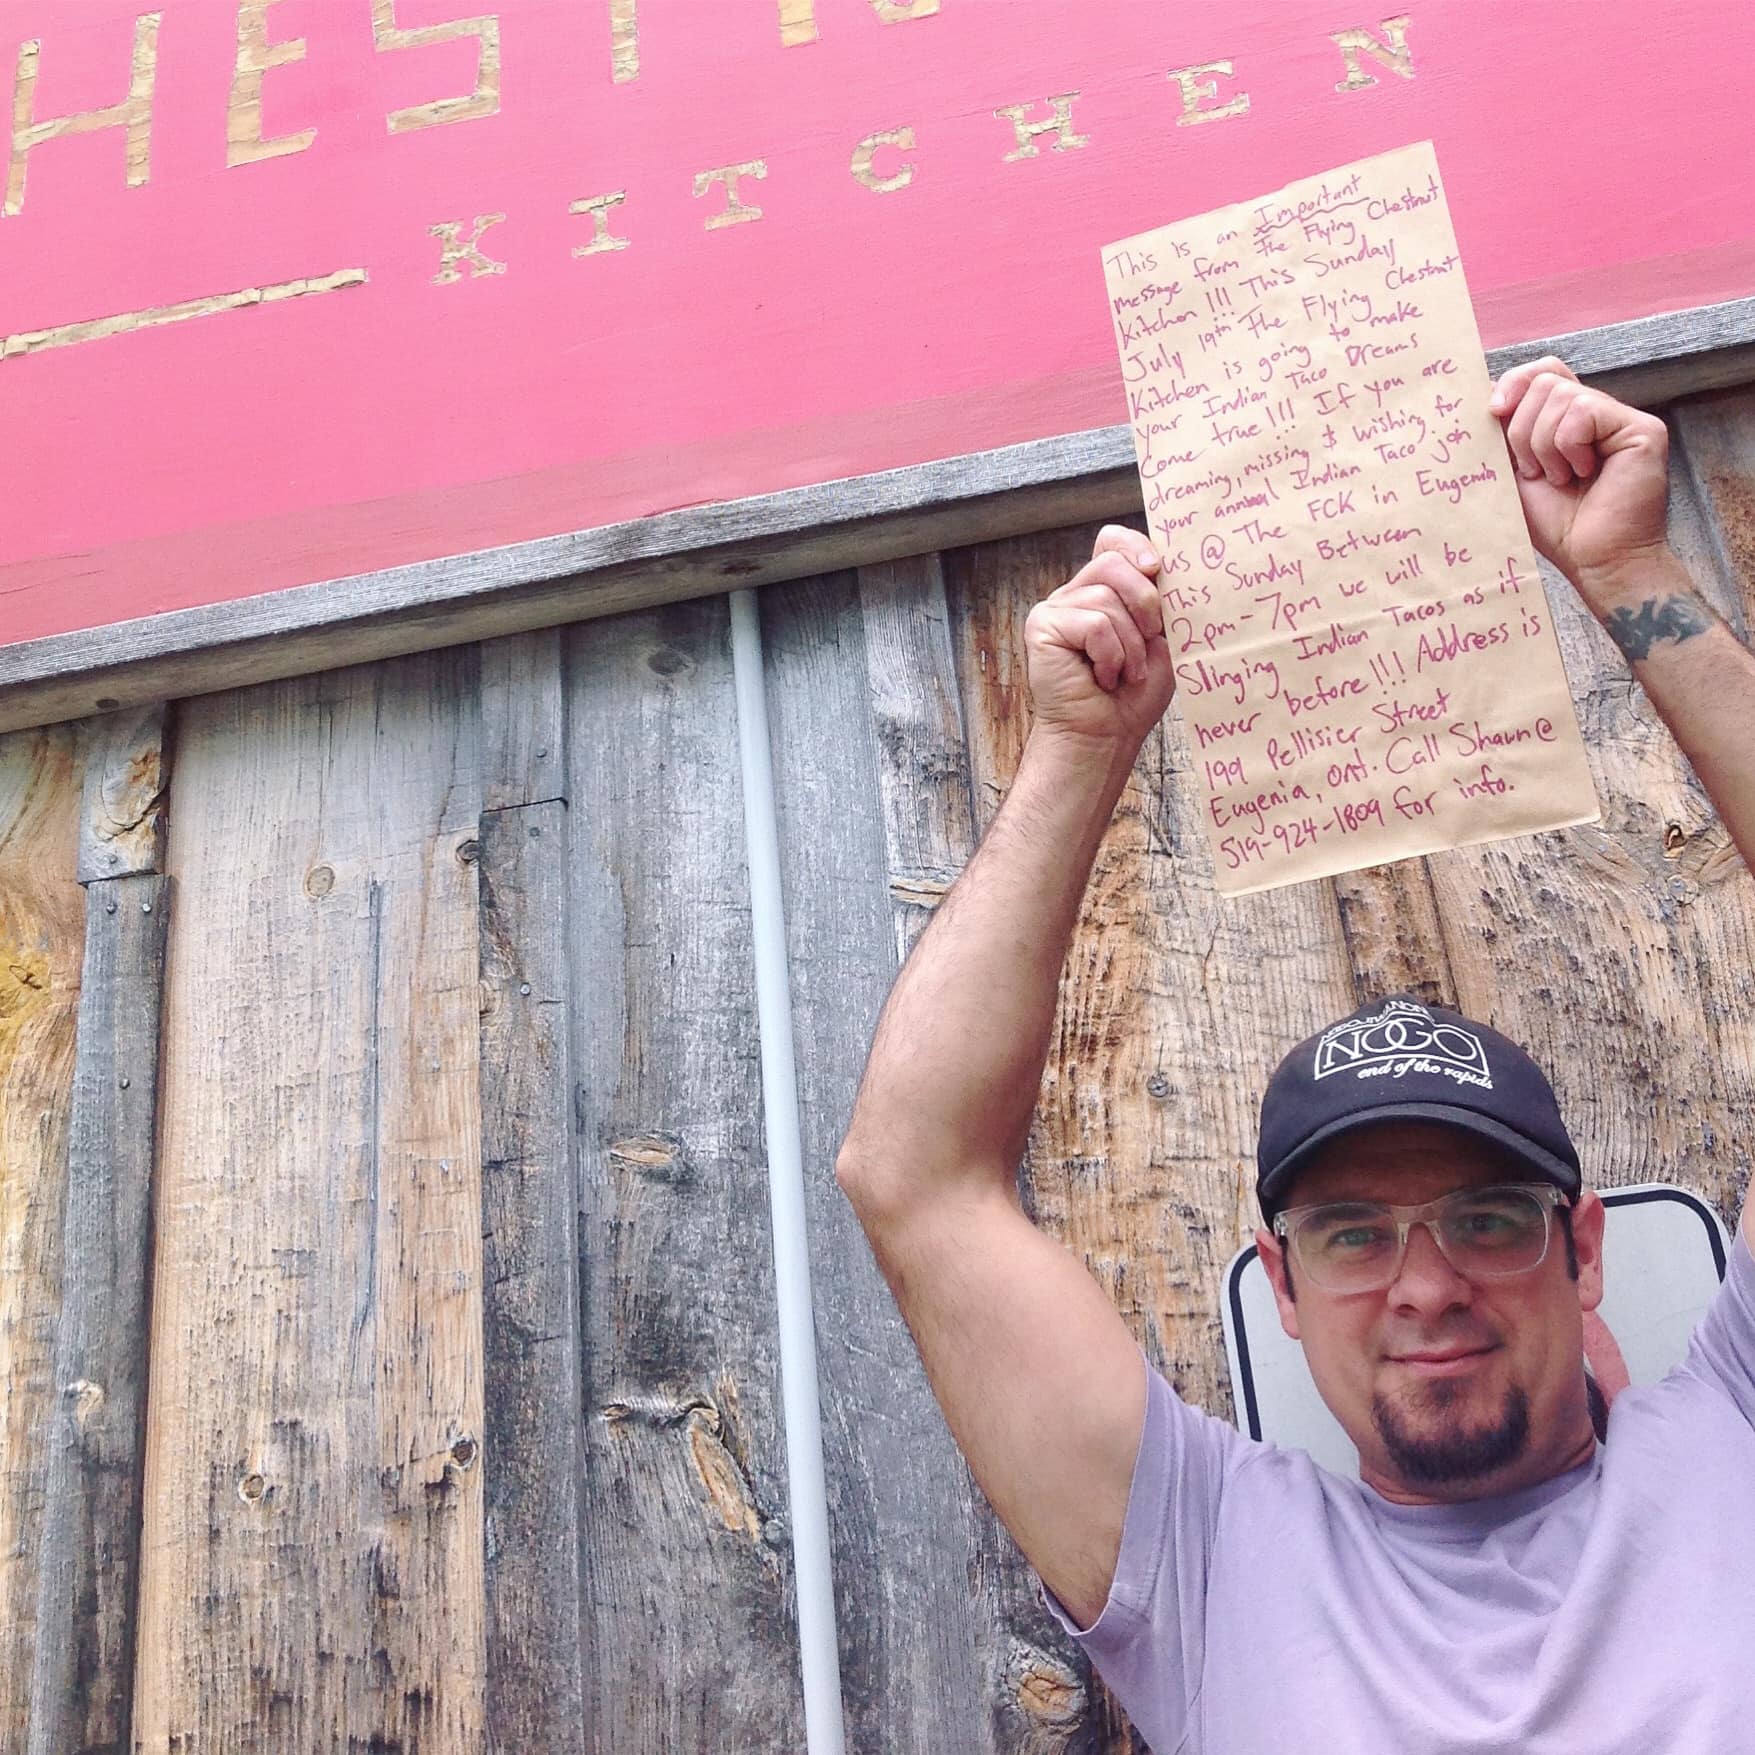 HEST
KITCHEN
This is an Important
message from The Flying Chestnut
Kitchen!!! This Sunday
July 19th The Flying Chestnut
Kitchen is going to make
your Indian Taco Dreams
come true!!! If you are
dreaming, missing & wishing for
your annual Indian Taco join
us @ The FCK in Eugenia
This Sunday Between
2pm-7pm we will be
Slinging Indian Tacos as if
never before!!! Address is
199 Pellisier Street
Eugenia, Ont. Call Shawn @
519-924-1809 for info.
NOGO
end of the rapids